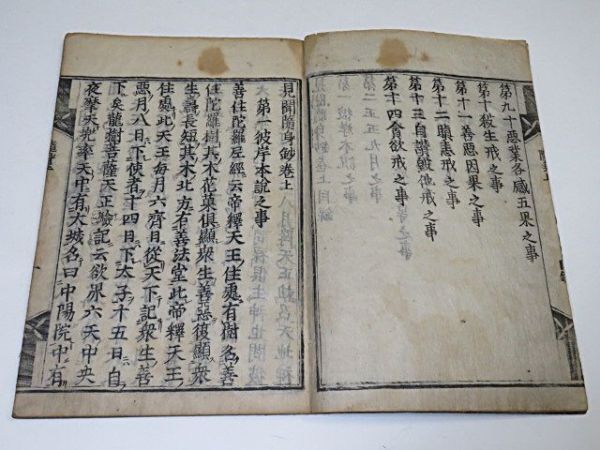 第九十惡業各感五果之事
第十殺生戒之事
第十一善惡因果之事
第十二瞋恚戒之事
第十三自讃毀他戒之事
第十四貪欲戒之事
見聞隨身鈔卷上
第一彼岸本說之事
善住陀羅尼經云帝釋天王住處有樹名善
住陀羅樹其木花菓俱顯衆生善惡復顯衆
生壽長短其木北方有善法堂此帝釋天王
住處此天王每月六齊日從天下記衆生善
惡月八日下使者十四日下太子十五日自
下矣龍樹菩薩天正驗記云欲界六天中央
夜摩天兜率天中有大城名曰中陽院中有